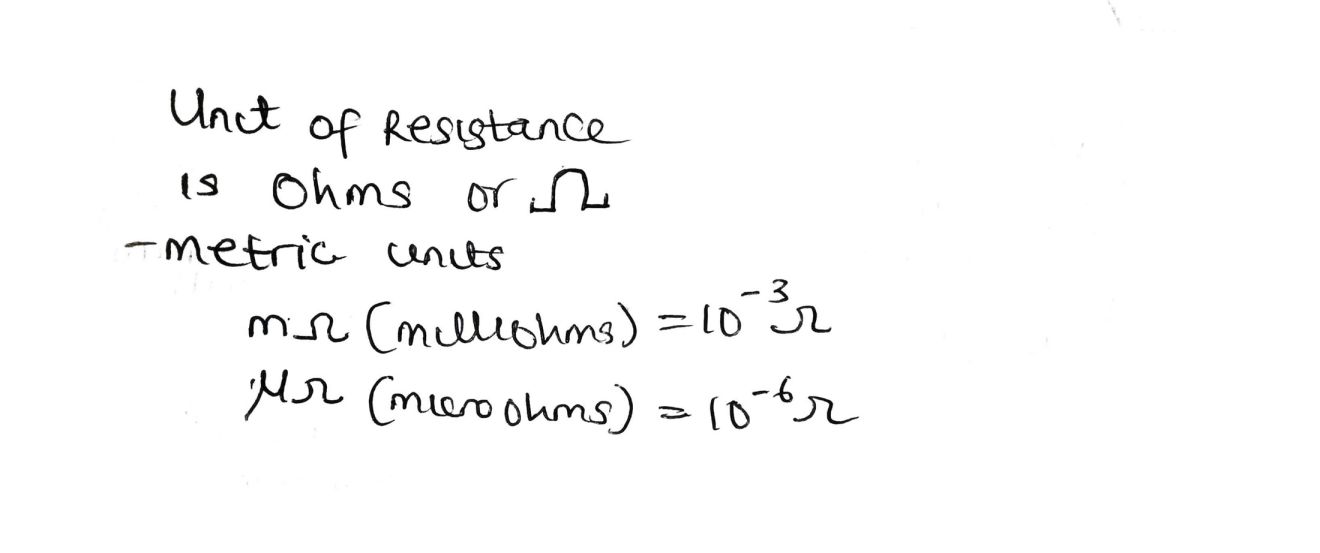 Unit of Resistance
is Ohms or Ω
-metric units
mΩ (milliohms) = 10⁻³Ω
μΩ (microohms) = 10⁻⁶Ω